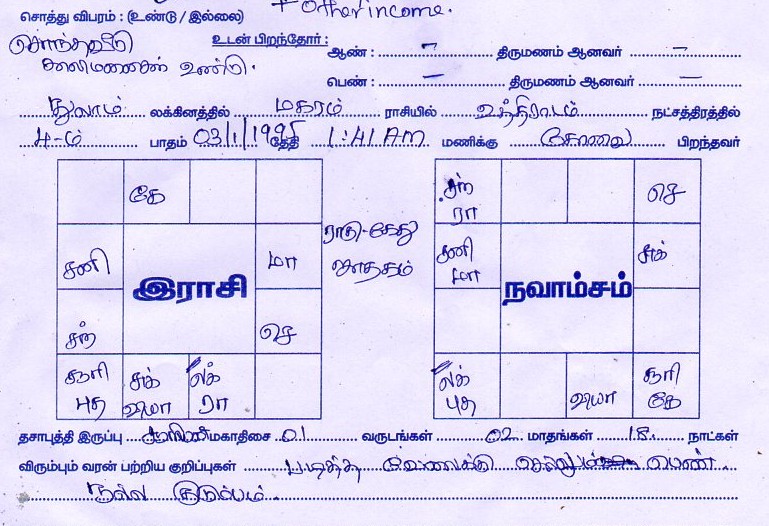 + Other income.
சொத்து விபரம் : (உண்டு / இல்லை)
சொந்தவீடு உடன் பிறந்தோர் : ஆண் : – திருமணம் ஆனவர் –
உண்டு.
பெண் : – திருமணம் ஆனவர் –
துலாம் லக்கினத்தில் மகரம் ராசியில் உத்திராடம் நட்சத்திரத்தில்
4-ம் பாதம் 03/1/1995 தேதி 1:41 AM மணிக்கு பிறந்தவர்
கே
சனி இராசி மா
சந் செ
சூரி புத சுக் வியா லக் ரா
ராகு-கேது
ஜாதகம்
சந் ரா செ
சனி மா நவாம்சம் சுக்
லக் புத வியா சூரி கே
தசாபுத்தி இருப்பு சூரியன் மகாதிசை 01 வருடங்கள் 02 மாதங்கள் 18 நாட்கள்
விரும்பும் வரன் பற்றிய குறிப்புகள் படித்த வேலைக்கு செல்லும் பெண்
நல்ல குடும்பம்.